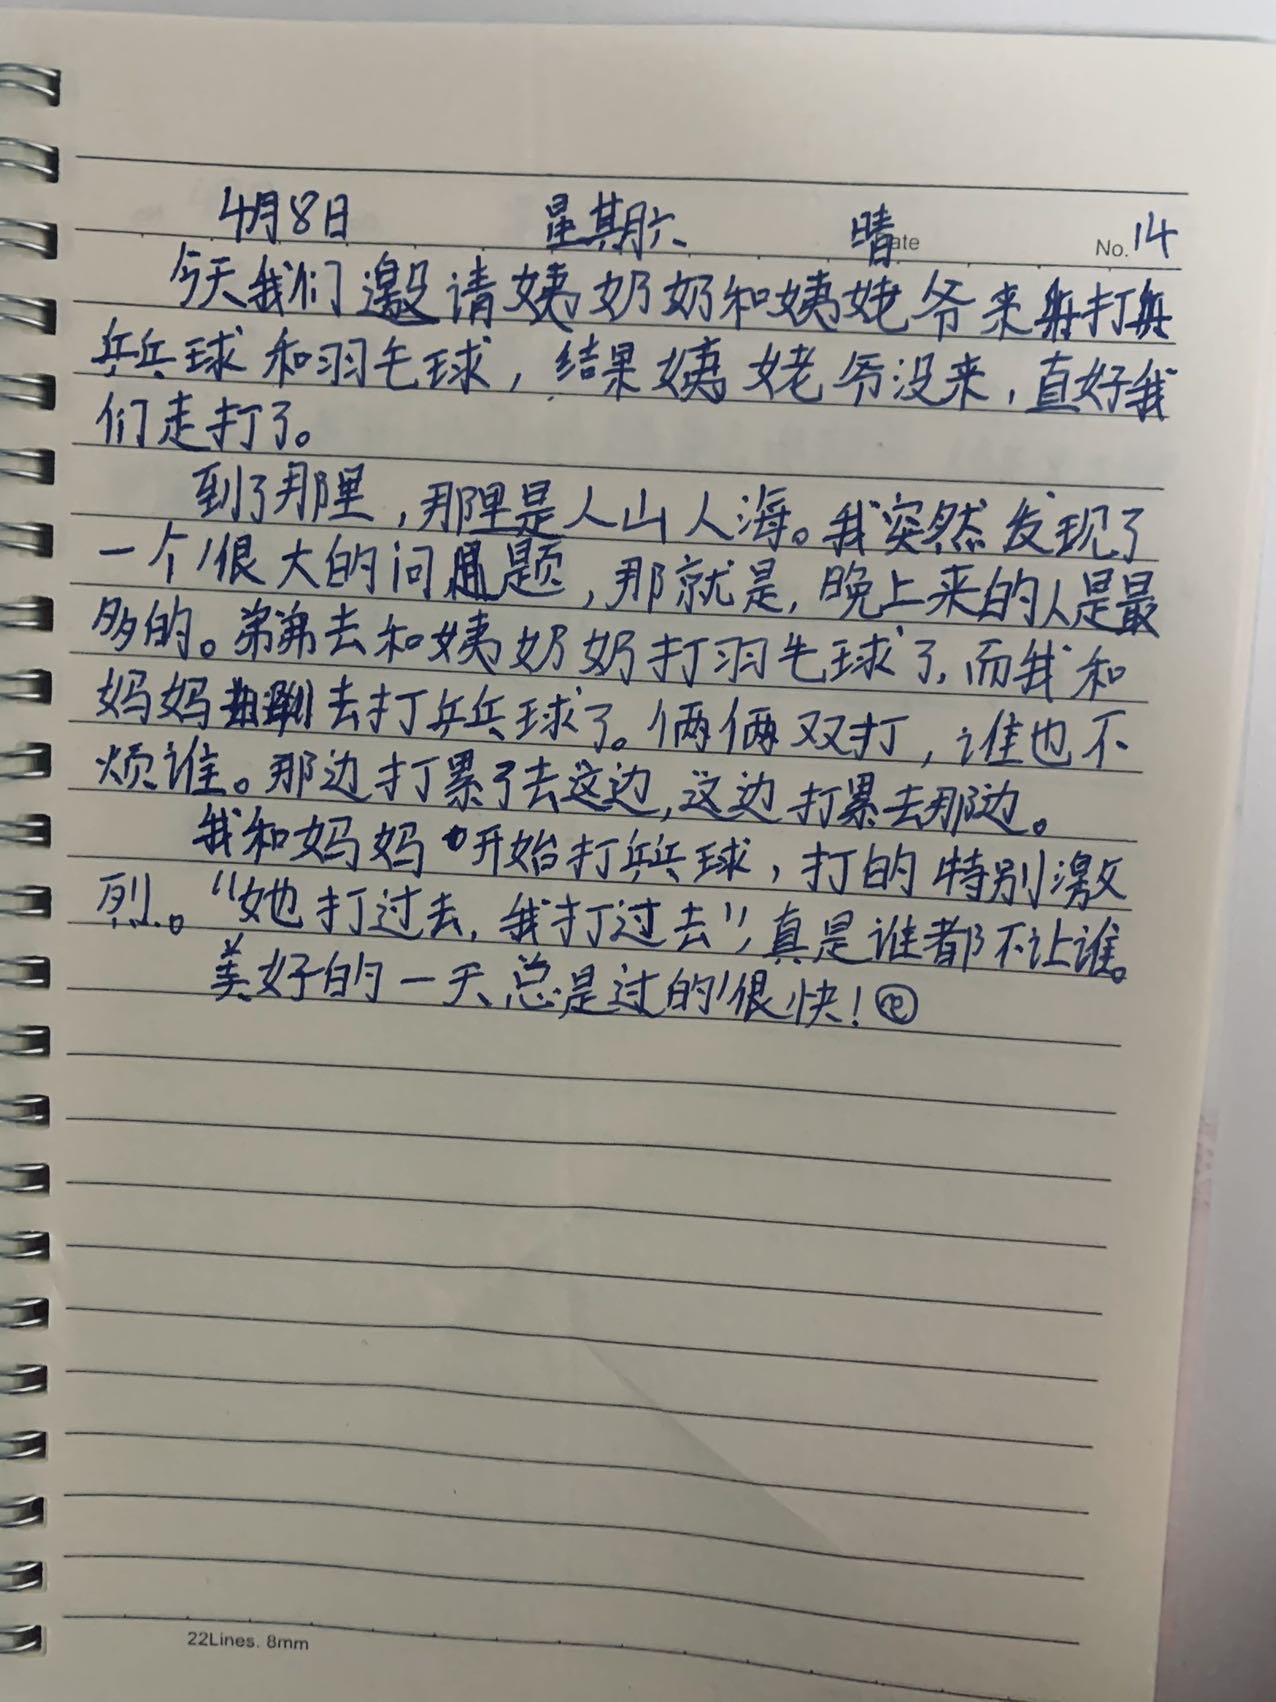 4月8日 星期六 晴 ate No. 14
今天我们邀请姨奶奶和姨姥爷来打
乒乓球和羽毛球，结果姨姥爷没来，直好我
们走打了。
到了那里，那里是人山人海。我突然发现了
一个很大的问题，那就是，晚上来的人是最
多的。弟弟去和姨奶奶打羽毛球了，而我和
妈妈去打乒乓球了。俩俩双打，谁也不
烦谁。那边打累了去这边，这边打累去那边。
我和妈妈开始打乒乓球，打的特别激
烈。“她打过去，我打过去”，真是谁都不让谁。
美好的一天总是过的很快！
22Lines. 8mm